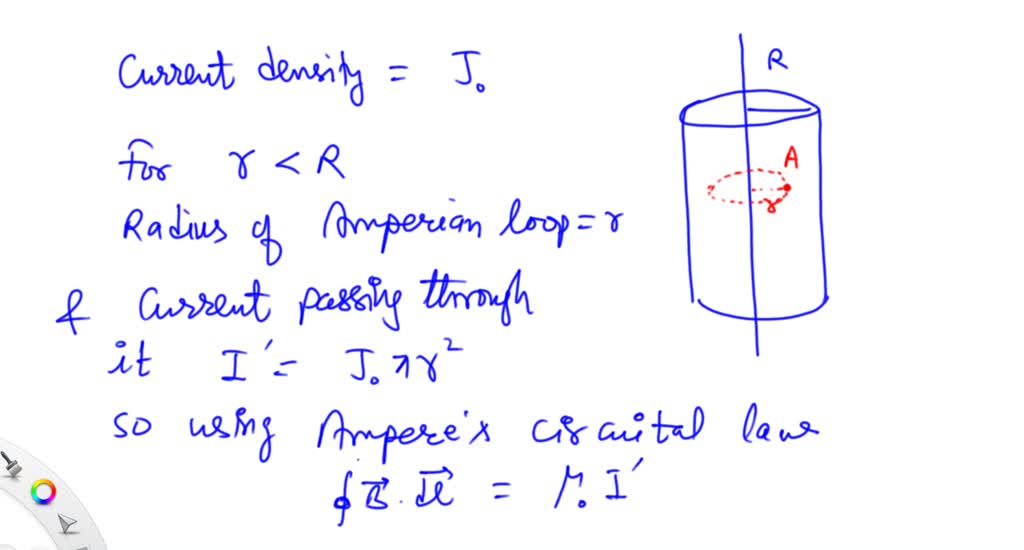 Current density = J₀
R
For r < R
A
r
Radius of Amperian loop = r
& Current passing through
it I′ = J₀ πr²
so using Ampere's circuital law
∮ B⃗ . dl⃗ = μ₀ I′